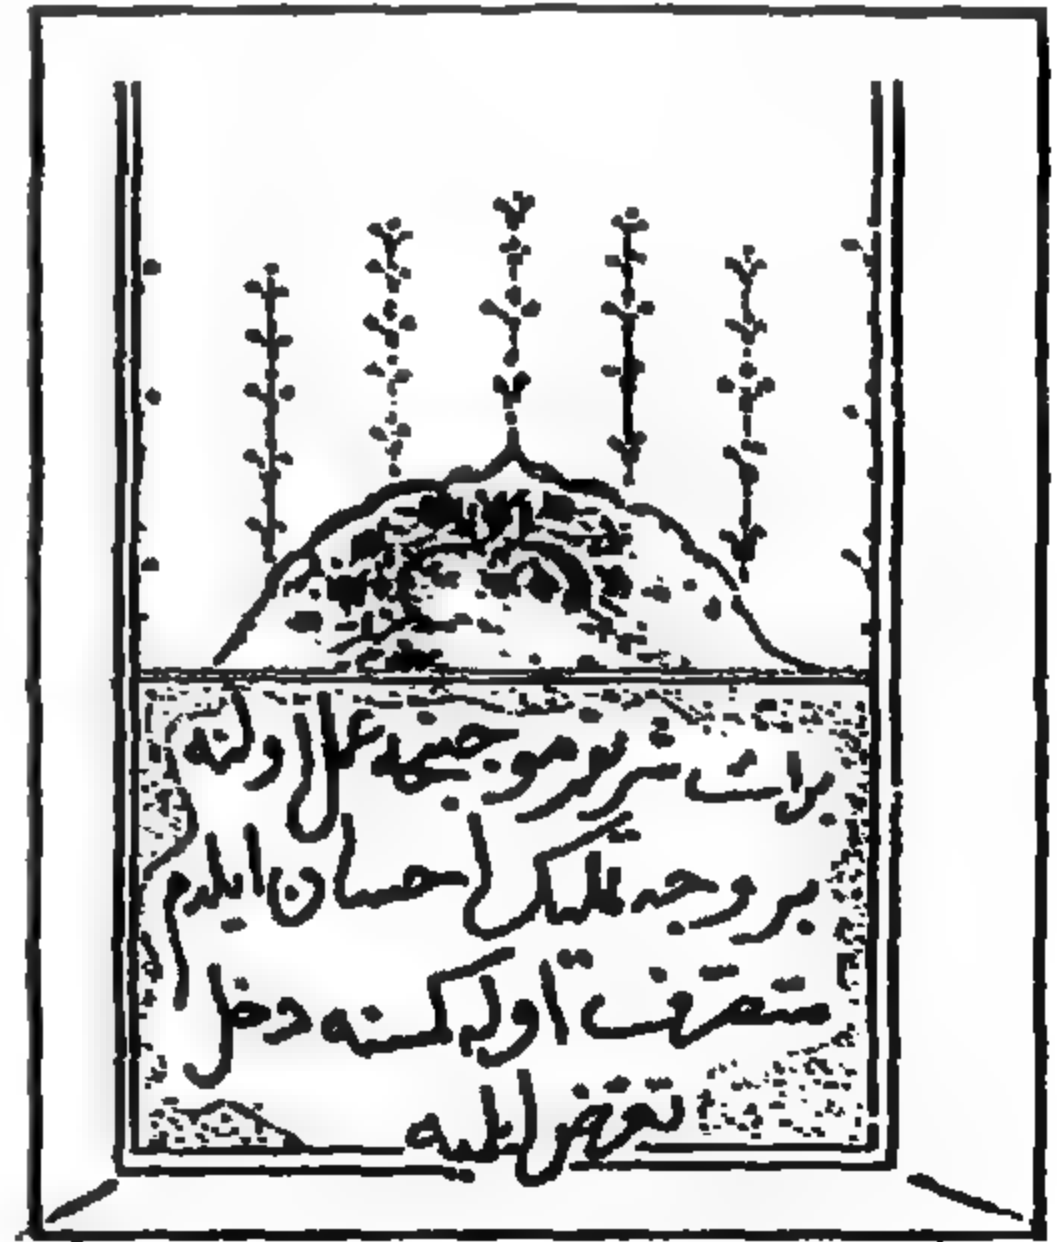 برات شریفم موجبنجه عمل اولنه
بر وجه تملیك احسان ایلدم
متصرف اوله كمسنه دخل
تعرض ایلمیه